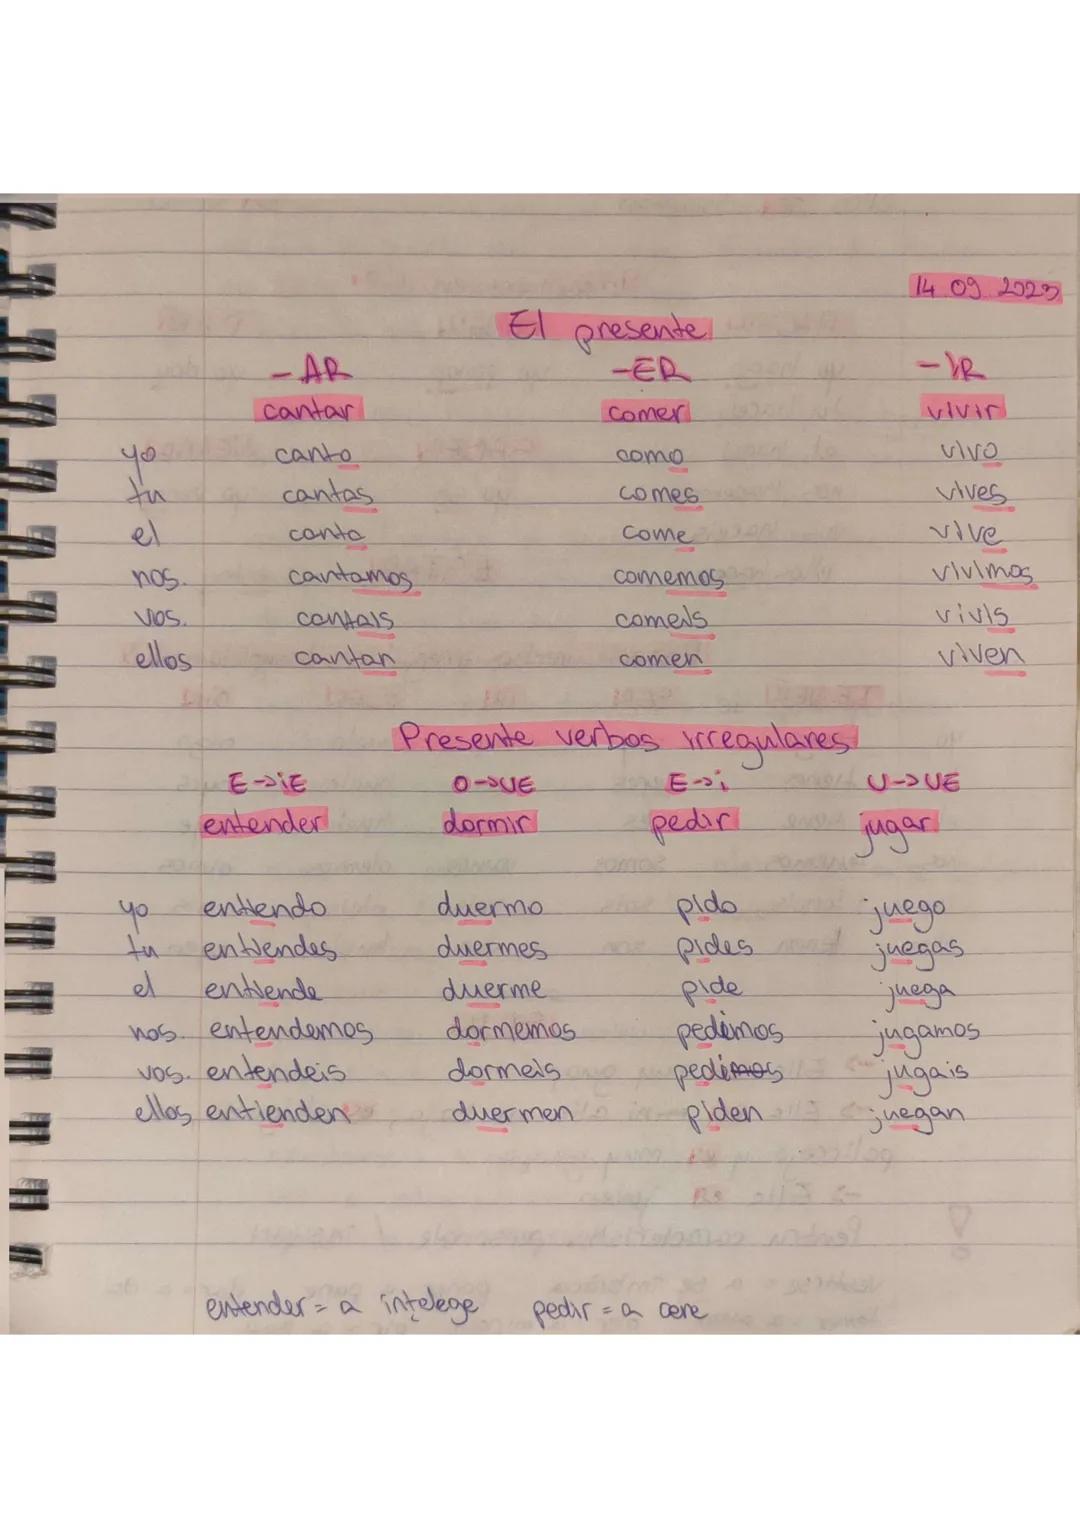 14.09.2023
El presente
-AR -ER -IR
cantar comer vivir
yo canto como vivo
tu cantas comes vives
el canta come vive
nos. cantamos comemos vivimos
vos. cantais comeis vivis
ellos cantan comen viven
Presente verbos irregulares
E->iE O->UE E->i U->UE
entender dormir pedir jugar
yo entiendo duermo pido juego
tu entiendes duermes pides juegas
el entiende duerme pide juega
nos. entendemos dormemos pedimos jugamos
vos. entendeis dormeis jugais
ellos entienden duermen piden juegan
entender = a înțelege pedir = a cere